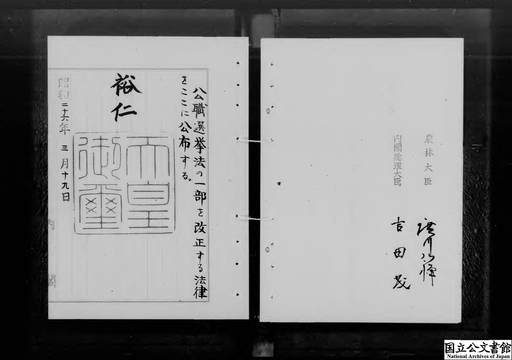 公職選挙法の一部を改正する法律
をここに公布する。
裕仁
天皇
御璽
昭和二十六年三月十九日
内閣
農林大臣
内閣総理大臣 吉田茂
国立公文書館
National Archives of Japan